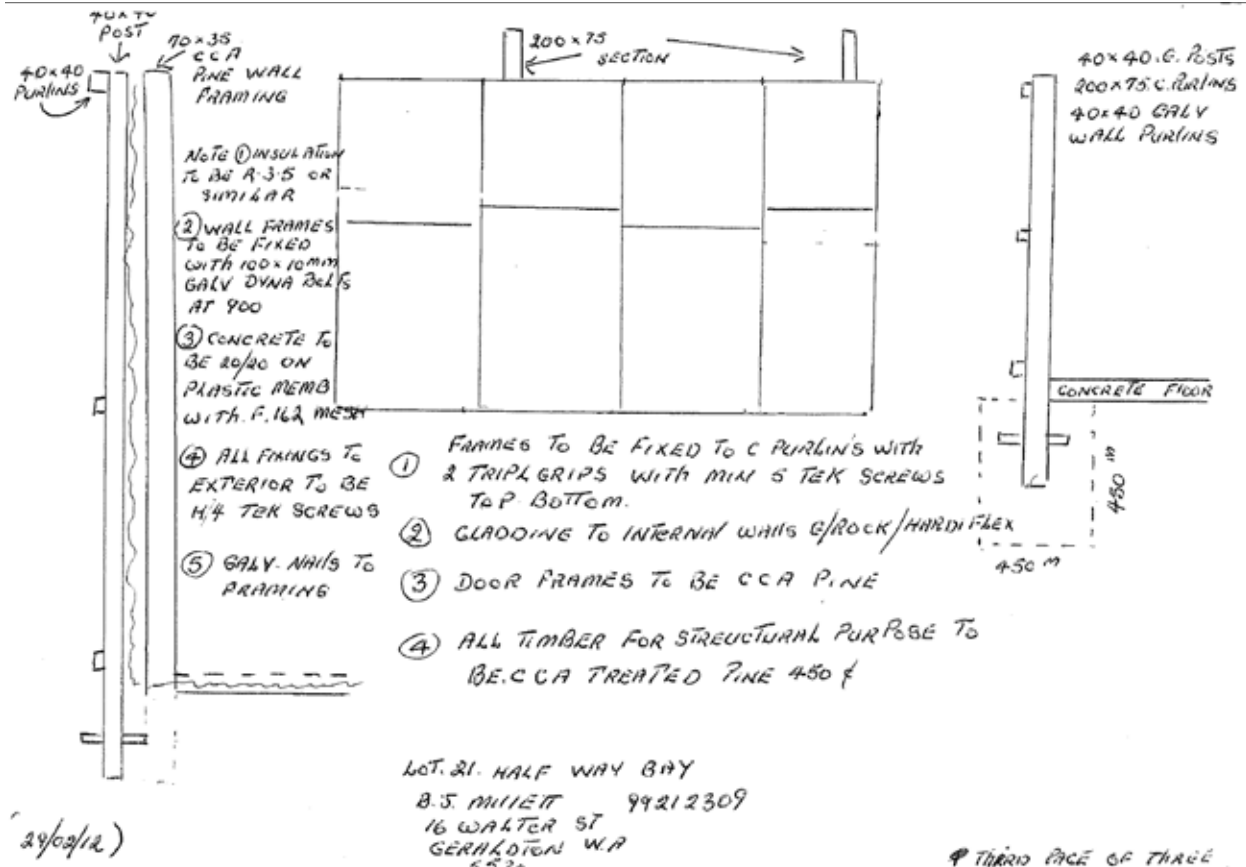 POST
70×35
CCA
PINE WALL
FRAMING
40×40
PURLINS
200×75
SECTION
40×40.G. POSTS
200×75.C.PURLINS
40×40 GALV
WALL PURLINS
NOTE ① INSULATION
TO BE R.3.5 OR
SIMILAR
② WALL FRAMES
TO BE FIXED
WITH 100×10mm
GALV DYNA BOLTS
AT 900
③ CONCRETE TO
BE 20/20 ON
PLASTIC MEMB
WITH. F.162 MESH
④ ALL FIXINGS TO
EXTERIOR TO BE
H/4 TEK SCREWS
⑤ GALV. NAILS TO
FRAMING
CONCRETE FLOOR
450 m
450 m
① FRAMES TO BE FIXED TO C PURLIN'S WITH
2 TRIPL GRIPS WITH MIN 5 TEK SCREWS
TOP BOTTOM.
② CLADDING TO INTERNAL WALLS G/ROCK/HARDIFLEX
③ DOOR FRAMES TO BE CCA PINE
④ ALL TIMBER FOR STREUCTURAL PURPOSE TO
BE.CCA TREATED PINE 450
LOT. 21. HALF WAY BAY
B.J. MILLETT 99212309
16 WALTER ST
GERALDTON W.A
29/02/12)
THIRD PAGE OF THREE